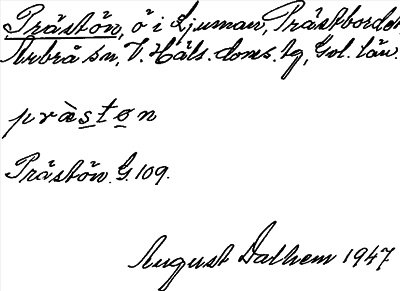 Prästön, ö i Ljusnan, Prästbordet,
Arbrå sn, V. Häls. doms. tg, Gvl. län.
pràston
Prästön. G. 109.
August Dalhem 1947